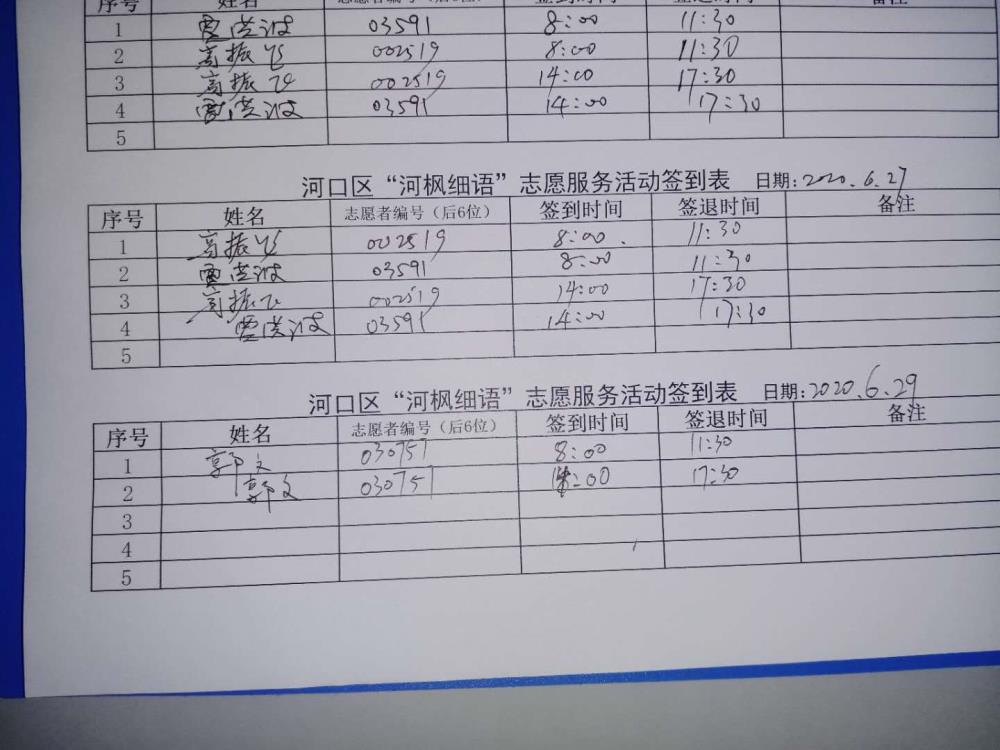 序号 姓名 志愿者编号(后6位) 签到时间 签退时间 备注
1 03591 8:00 11:30
2 高振飞 002519 8:00 11:30
3 高振飞 002519 14:00 17:30
4 03591 14:00 17:30
5
河口区“河枫细语”志愿服务活动签到表 日期:2020.6.27
序号 姓名 志愿者编号(后6位) 签到时间 签退时间 备注
1 高振飞 002519 8:00 11:30
2 03591 8:00 11:30
3 高振飞 002519 14:00 17:30
4 03591 14:00 17:30
5
河口区“河枫细语”志愿服务活动签到表 日期:2020.6.29
序号 姓名 志愿者编号(后6位) 签到时间 签退时间 备注
1 郭文 030757 8:00 11:30
2 郭文 030757 14:00 17:30
3
4
5